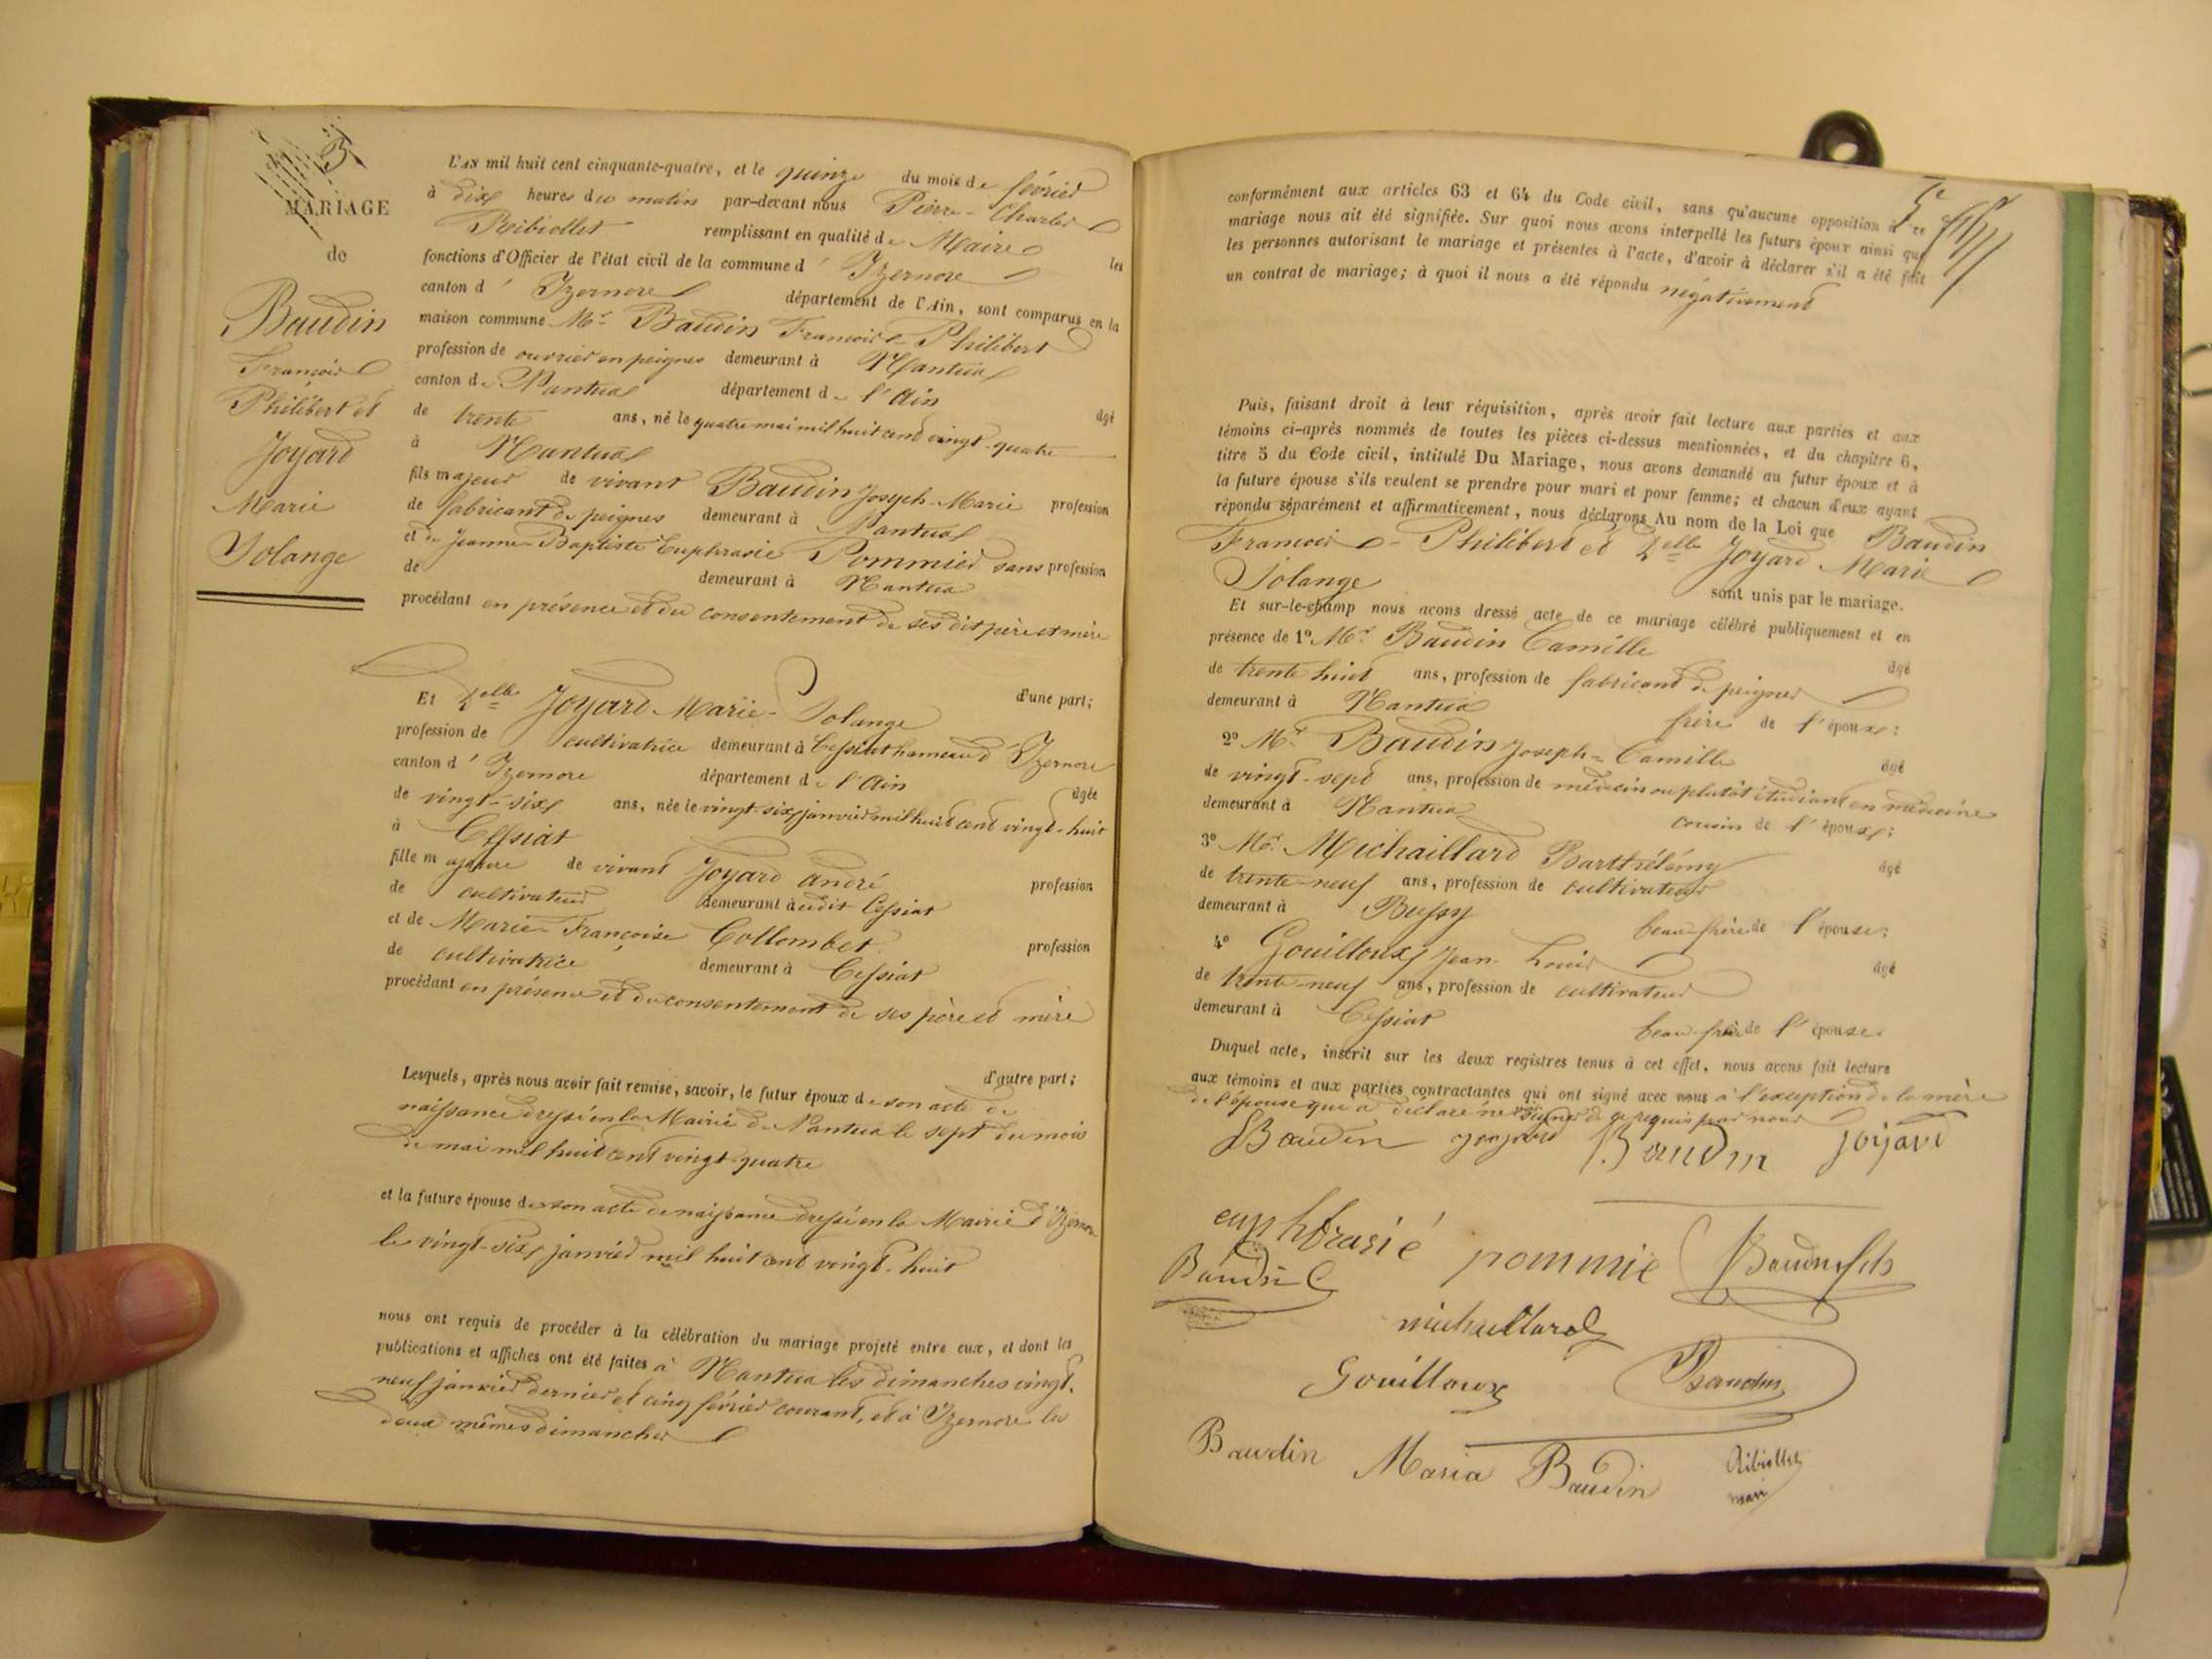 3
MARIAGE
de
Baudin
François
Philibert et
Joyard
Marie
Solange
L'AN mil huit cent cinquante-quatre, et le quinze du mois de février
à dix heures du matin par-devant nous Pierre-Charles
Ribiollet remplissant en qualité de Maire les
fonctions d'Officier de l'état civil de la commune d'Izernore
canton d'Izernore département de l'Ain, sont comparus en la
maison commune Mr Baudin François-Philibert
profession de ouvrier en peignes demeurant à Nantua
canton de Nantua département de l'Ain âgé
de trente ans, né le quatre mai mil huit cent vingt-quatre
à Nantua
fils majeur de vivant Baudin Joseph-Marie profession
de fabricant de peignes demeurant à Nantua
et de Jeanne-Baptiste Euphrasie Pommier sans profession
de demeurant à Nantua
procédant en présence et du consentement de ses dit père et mère
d'une part;
Et Delle Joyard Marie-Solange
profession de cultivatrice demeurant à Cessiat hameau d'Izernore
canton d'Izernore département de l'Ain âgée
de vingt-six ans, née le vingt-six janvier mil huit cent vingt-huit
à Cessiat
fille majeure de vivant Joyard André profession
de cultivateur demeurant audit Cessiat
et de Marie-Françoise Collombet profession
de cultivatrice demeurant à Cessiat
procédant en présence et du consentement de ses père et mère
d'autre part;
Lesquels, après nous avoir fait remise, savoir, le futur époux de son acte de
naissance dressé en la Mairie de Nantua le sept du mois
de mai mil huit cent vingt-quatre
et la future épouse de son acte de naissance dressé en la Mairie d'Izernore
le vingt-six janvier mil huit cent vingt-huit
nous ont requis de procéder à la célébration du mariage projeté entre eux, et dont les
publications et affiches ont été faites à Nantua les dimanches vingt-
neuf janvier dernier et cinq février courant, et à Izernore les
deux mêmes dimanches
conformément aux articles 63 et 64 du Code civil, sans qu'aucune opposition à ce
mariage nous ait été signifiée. Sur quoi nous avons interpellé les futurs époux ainsi que
les personnes autorisant le mariage et présentes à l'acte, d'avoir à déclarer s'il a été fait
un contrat de mariage; à quoi il nous a été répondu négativement
Puis, faisant droit à leur réquisition, après avoir fait lecture aux parties et aux
témoins ci-après nommés de toutes les pièces ci-dessus mentionnées, et du chapitre 6,
titre 5 du Code civil, intitulé Du Mariage, nous avons demandé au futur époux et à
la future épouse s'ils veulent se prendre pour mari et pour femme; et chacun d'eux ayant
répondu séparément et affirmativement, nous déclarons Au nom de la Loi que Baudin
François-Philibert et Delle Joyard Marie
Solange sont unis par le mariage.
Et sur-le-champ nous avons dressé acte de ce mariage célébré publiquement et en
présence de 1º Mr Baudin Camille âgé
de trente huit ans, profession de fabricant de peignes
demeurant à Nantua frère de l'époux;
2º Mr Baudin Joseph-Camille âgé
de vingt-sept ans, profession de médecin ou plutôt étudiant en médecine
demeurant à Nantua cousin de l'époux;
3º Mr Michaillard Barthélémy âgé
de trente-neuf ans, profession de cultivateur
demeurant à Bussy beau-frère de l'épouse;
4º Gouilloux Jean-Louis âgé
de trente-neuf ans, profession de cultivateur
demeurant à Cessiat beau-frère de l'épouse.
Duquel acte, inscrit sur les deux registres tenus à cet effet, nous avons fait lecture
aux témoins et aux parties contractantes qui ont signé avec nous à l'exception de la mère
de l'épouse qui a déclaré ne savoir signer de ce requis par nous
Baudin joyard Baudin joyard
euphrasie pommie Baudin fils
Baudin C
michaillard
Gouilloux Baudin
Baudin Maria Baudin Ribiollet
maire